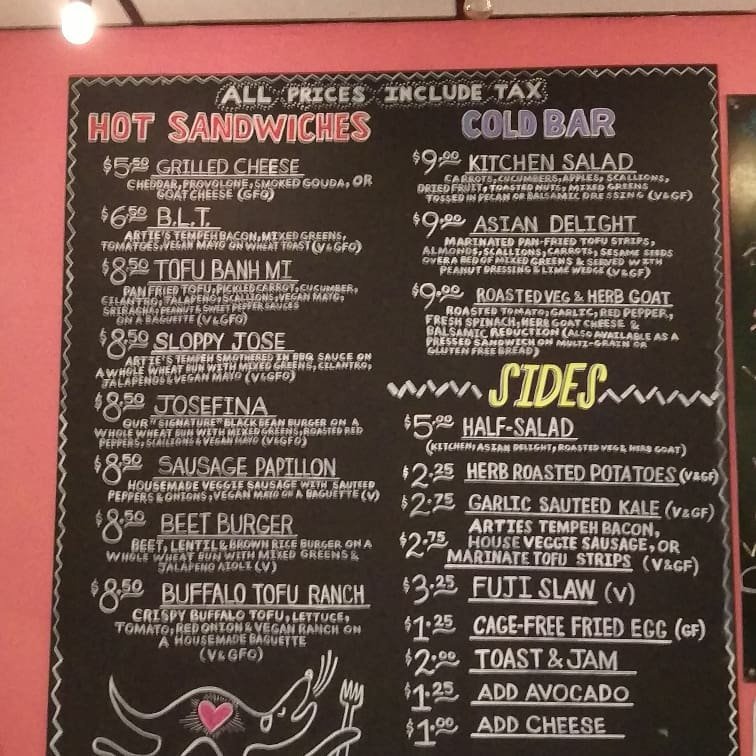 ALL PRICES INCLUDE TAX
HOT SANDWICHES
$5.50 GRILLED CHEESE
CHEDDAR, PROVOLONE, SMOKED GOUDA, OR
GOAT CHEESE (GFO)
$6.50 B.L.T.
ARTIE'S TEMPEH BACON, MIXED GREENS,
TOMATOES, VEGAN MAYO ON WHEAT TOAST (V&GFO)
$8.50 TOFU BANH MI
PAN FRIED TOFU, PICKLED CARROT, CUCUMBER,
CILANTRO, JALAPENO, SCALLIONS, VEGAN MAYO,
SRIRACHA, PEANUT & SWEET PEPPER SAUCES
ON A BAGUETTE (V&GFO)
$8.50 SLOPPY JOSE
ARTIE'S TEMPEH SMOTHERED IN BBQ SAUCE ON
A WHOLE WHEAT BUN WITH MIXED GREENS, CILANTRO,
JALAPENOS & VEGAN MAYO (V&GFO)
$8.50 JOSEFINA
OUR "SIGNATURE" BLACK BEAN BURGER ON A
WHOLE WHEAT BUN WITH MIXED GREENS, ROASTED RED
PEPPERS, SCALLIONS & VEGAN MAYO (V&GFO)
$8.50 SAUSAGE PAPILLON
HOUSEMADE VEGGIE SAUSAGE WITH SAUTEED
PEPPERS & ONIONS, VEGAN MAYO ON A BAGUETTE (V)
$8.50 BEET BURGER
BEET, LENTIL & BROWN RICE BURGER ON A
WHOLE WHEAT BUN WITH MIXED GREENS &
JALAPENO AIOLI (V)
$8.50 BUFFALO TOFU RANCH
CRISPY BUFFALO TOFU, LETTUCE,
TOMATO, RED ONION & VEGAN RANCH ON
A HOUSEMADE BAGUETTE
(V&GFO)
COLD BAR
$9.00 KITCHEN SALAD
CARROTS, CUCUMBERS, APPLES, SCALLIONS,
DRIED FRUIT, TOASTED NUTS, MIXED GREENS
TOSSED IN PECAN OR BALSAMIC DRESSING (V&GF)
$9.00 ASIAN DELIGHT
MARINATED PAN-FRIED TOFU STRIPS,
ALMONDS, SCALLIONS, CARROTS, SESAME SEEDS
OVER A BED OF MIXED GREENS & SERVED WITH
PEANUT DRESSING & LIME WEDGE (V&GF)
$9.00 ROASTED VEG & HERB GOAT
ROASTED TOMATO, GARLIC, RED PEPPER,
FRESH SPINACH, HERB GOAT CHEESE &
BALSAMIC REDUCTION (ALSO AVAILABLE AS A
PRESSED SANDWICH ON MULTI-GRAIN OR
GLUTEN FREE BREAD)
SIDES
$5.00 HALF-SALAD
(KITCHEN, ASIAN DELIGHT, ROASTED VEG & HERB GOAT)
$2.25 HERB ROASTED POTATOES (V&GF)
$2.75 GARLIC SAUTEED KALE (V&GF)
ARTIES TEMPEH BACON,
$2.75 HOUSE VEGGIE SAUSAGE, OR
MARINATE TOFU STRIPS (V&GF)
$3.25 FUJI SLAW (V)
$1.25 CAGE-FREE FRIED EGG (GF)
$2.00 TOAST & JAM
$1.25 ADD AVOCADO
$1.00 ADD CHEESE